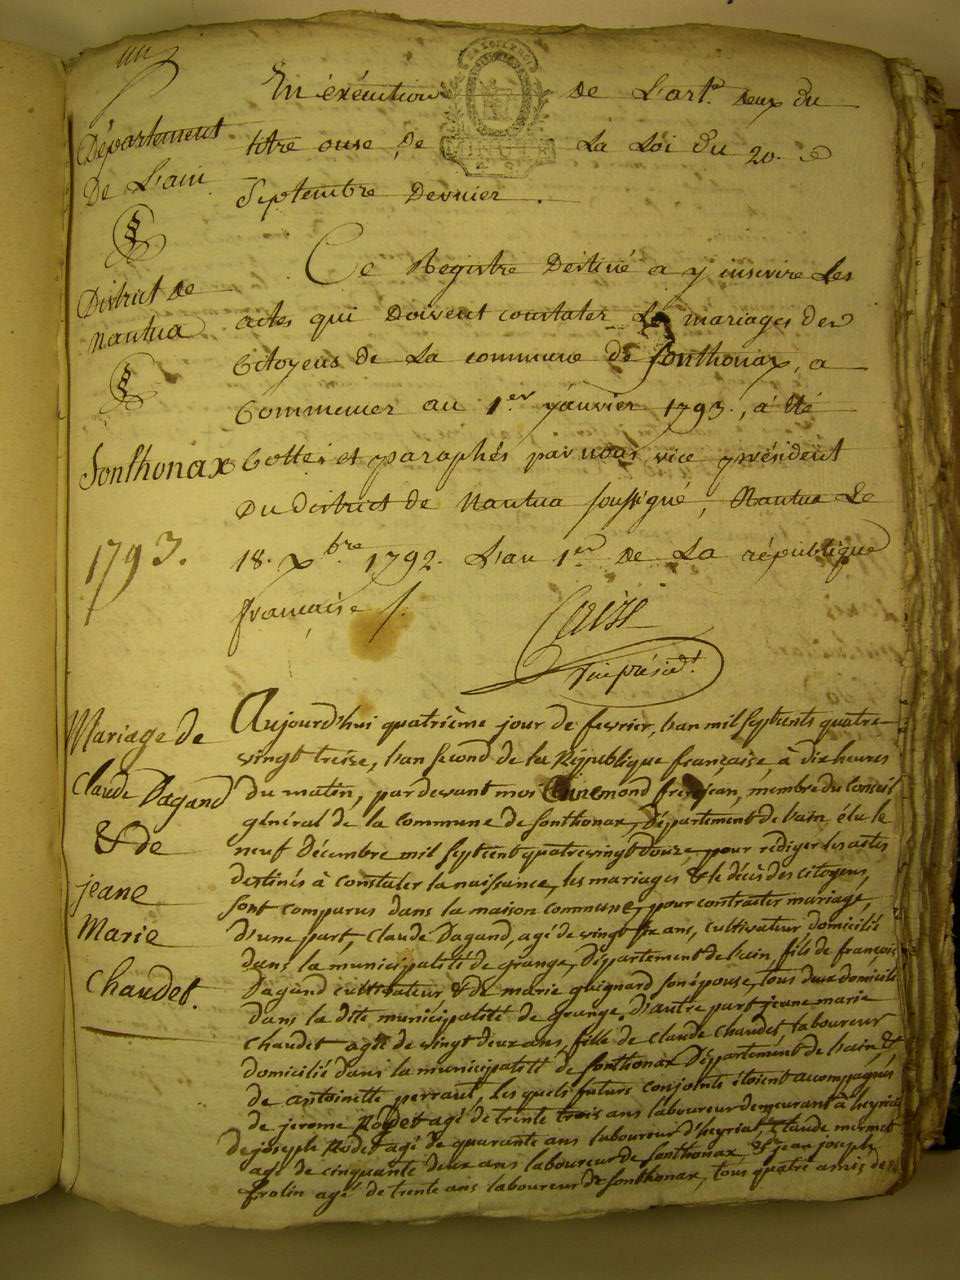 Département
De L'ain
District de
Nantua
Sonthonax
1793.
En éxécution de L'art.e deux du
titre onse de La Loi du 20. 
Septembre Dernier.
Ce Registre Destiné a y inscrire Les
actes qui Doivent constater Les mariages des
Citoyens de La commune de Sonthonax, a
Commencer au 1.er janvier 1793., a été
Cotté et paraphés par nous vice président
Du District de Nantua soussigné, Nantua Le
18. Xbre 1792. L'an 1.er de La république
française /.
vice présid.t
Mariage de
Claude Dagand
& de
jeane
Marie
Chaudet.
Aujourd'hui quatrième jour de fevrier, l'an mil septcents quatre
vingt treise, l'an second de la République française, à dix heures
du matin, pardevant moi mond frerejean, membre du Conseil
général de la Commune de Sonthonax, Département de l'ain élu le
neuf Décembre mil septcent quatrevingt douze, pour rédiger les actes
destinés à constater la naissance, les mariages & le décès des citoyens,
sont comparus dans la maison commune, pour contracter mariage,
D'une part, Claude Dagand, agé de vingt six ans, cultivateur domicilié
dans la municipalité de grange, Département de l'ain, fils de françois
Dagand cultivateur & de marie guignard son épouse, tous deux domiciliés
dans la dite municipalité de grange, D'autre part jeane marie
Chaudet agée de vingt deux ans, fille de Claude Chaudet, laboureur
domicilié dans la municipalité de Sonthonax Département de l'ain, &
de antoinette perraut, les quels futurs conjoints étoient accompagnés
de jerome Rodet agé de trente trois ans laboureur demeurant à heyriat
de joseph Rodet agé de quarante ans laboureur d'heyriat, Claude mermet
agé de cinquante deux ans laboureur de Sonthonax, & jean joseph
frolin agé de trente ans laboureur de Sonthonax, tous quatre amis de